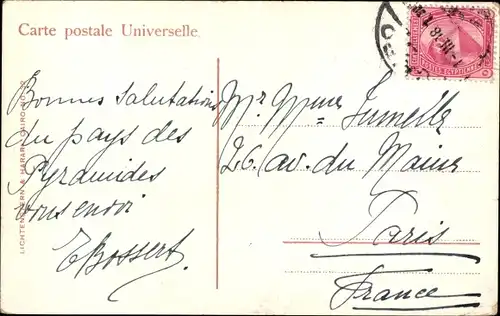 Carte postale Universelle.
POSTES EGYPTIENNES
Bonnes salutations
du pays des
Pyramides
vous envoi
E Bossert.
Mr Mme Jumelle
26. av. du Maine
Paris
France
LICHTENSTERN & HARARI, CAIRO